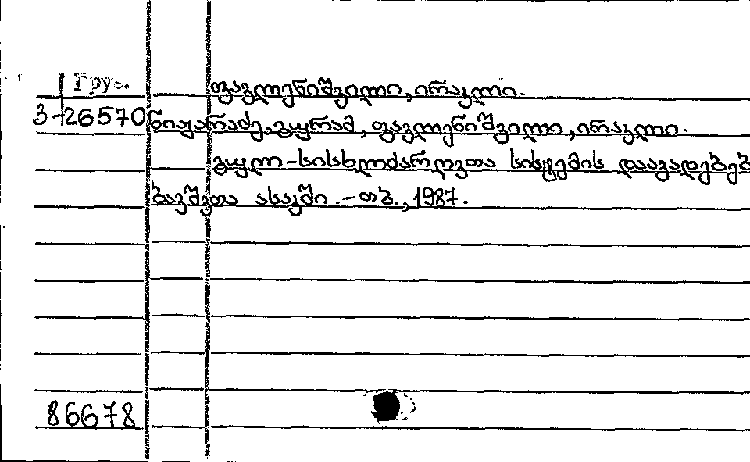 Груз.
ფავლენიშვილი, ირაკლი.
3-26570 ნიჟარაძე, გურამ, ფავლენიშვილი, ირაკლი.
გულ-სისხლძარღვთა სისტემის დაავადებებ
ბავშვთა ასაკში. - თბ., 1987.
86678